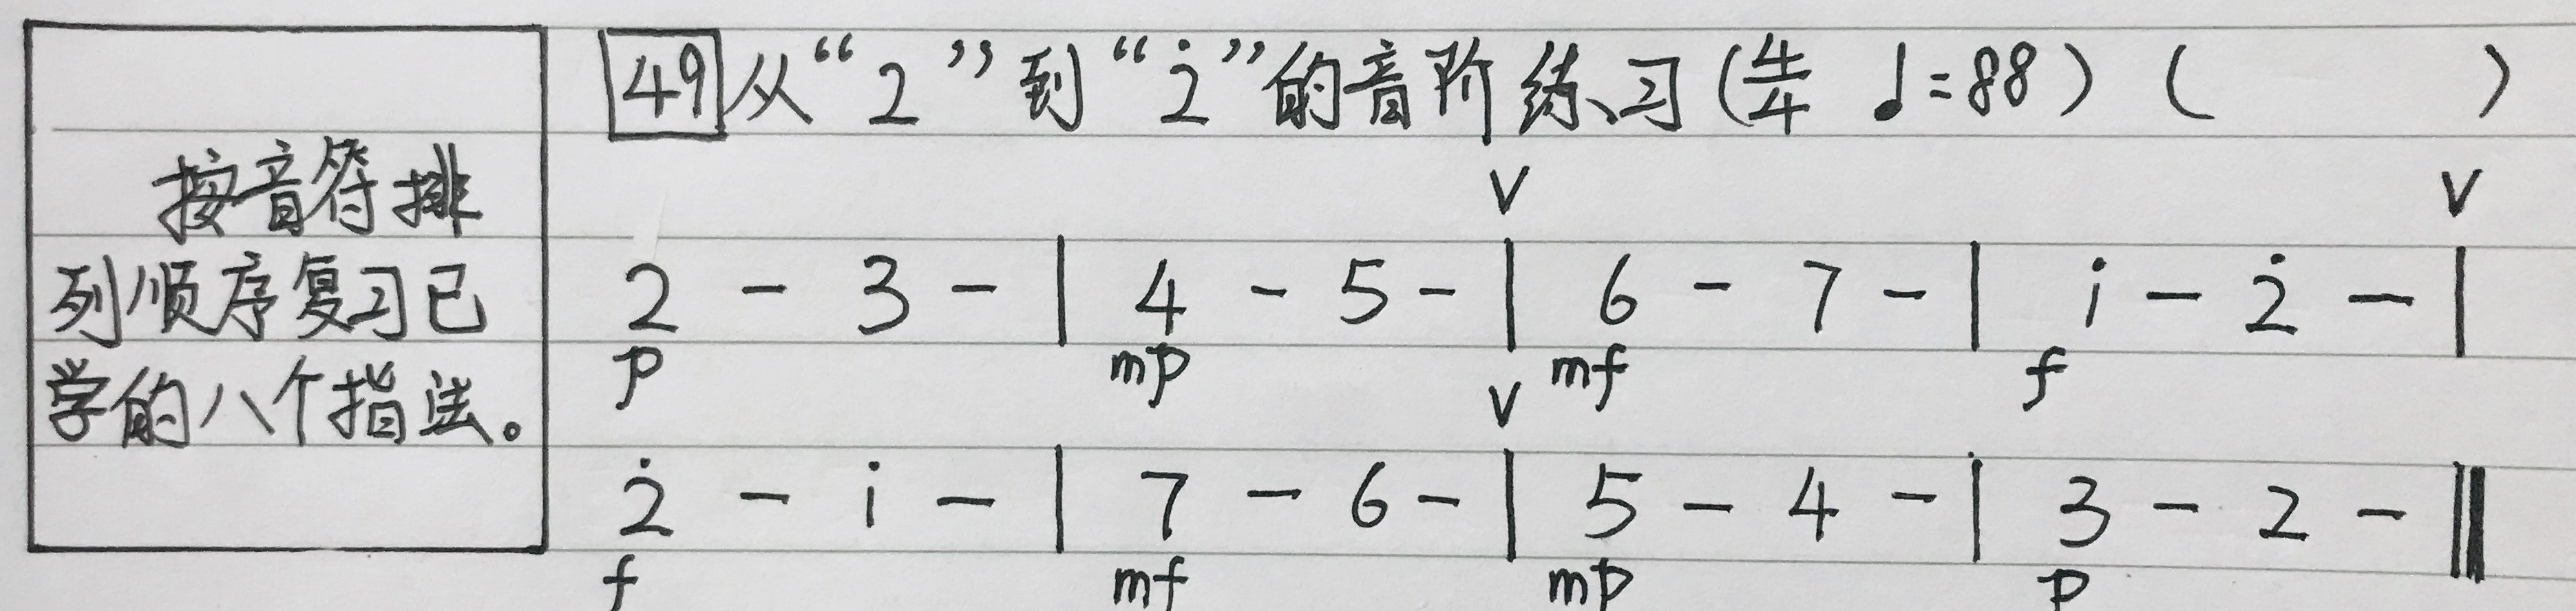 49 从“2”到“2̇”的音阶练习(4/4 ♩=88) ( )
按音符排
列顺序复习已
学的八个指法。
V V
2 - 3 - | 4 - 5 - | 6 - 7 - | 1̇ - 2̇ - |
p mp mf f
V
2̇ - 1̇ - | 7 - 6 - | 5 - 4 - | 3 - 2 - ‖
f mf mp p